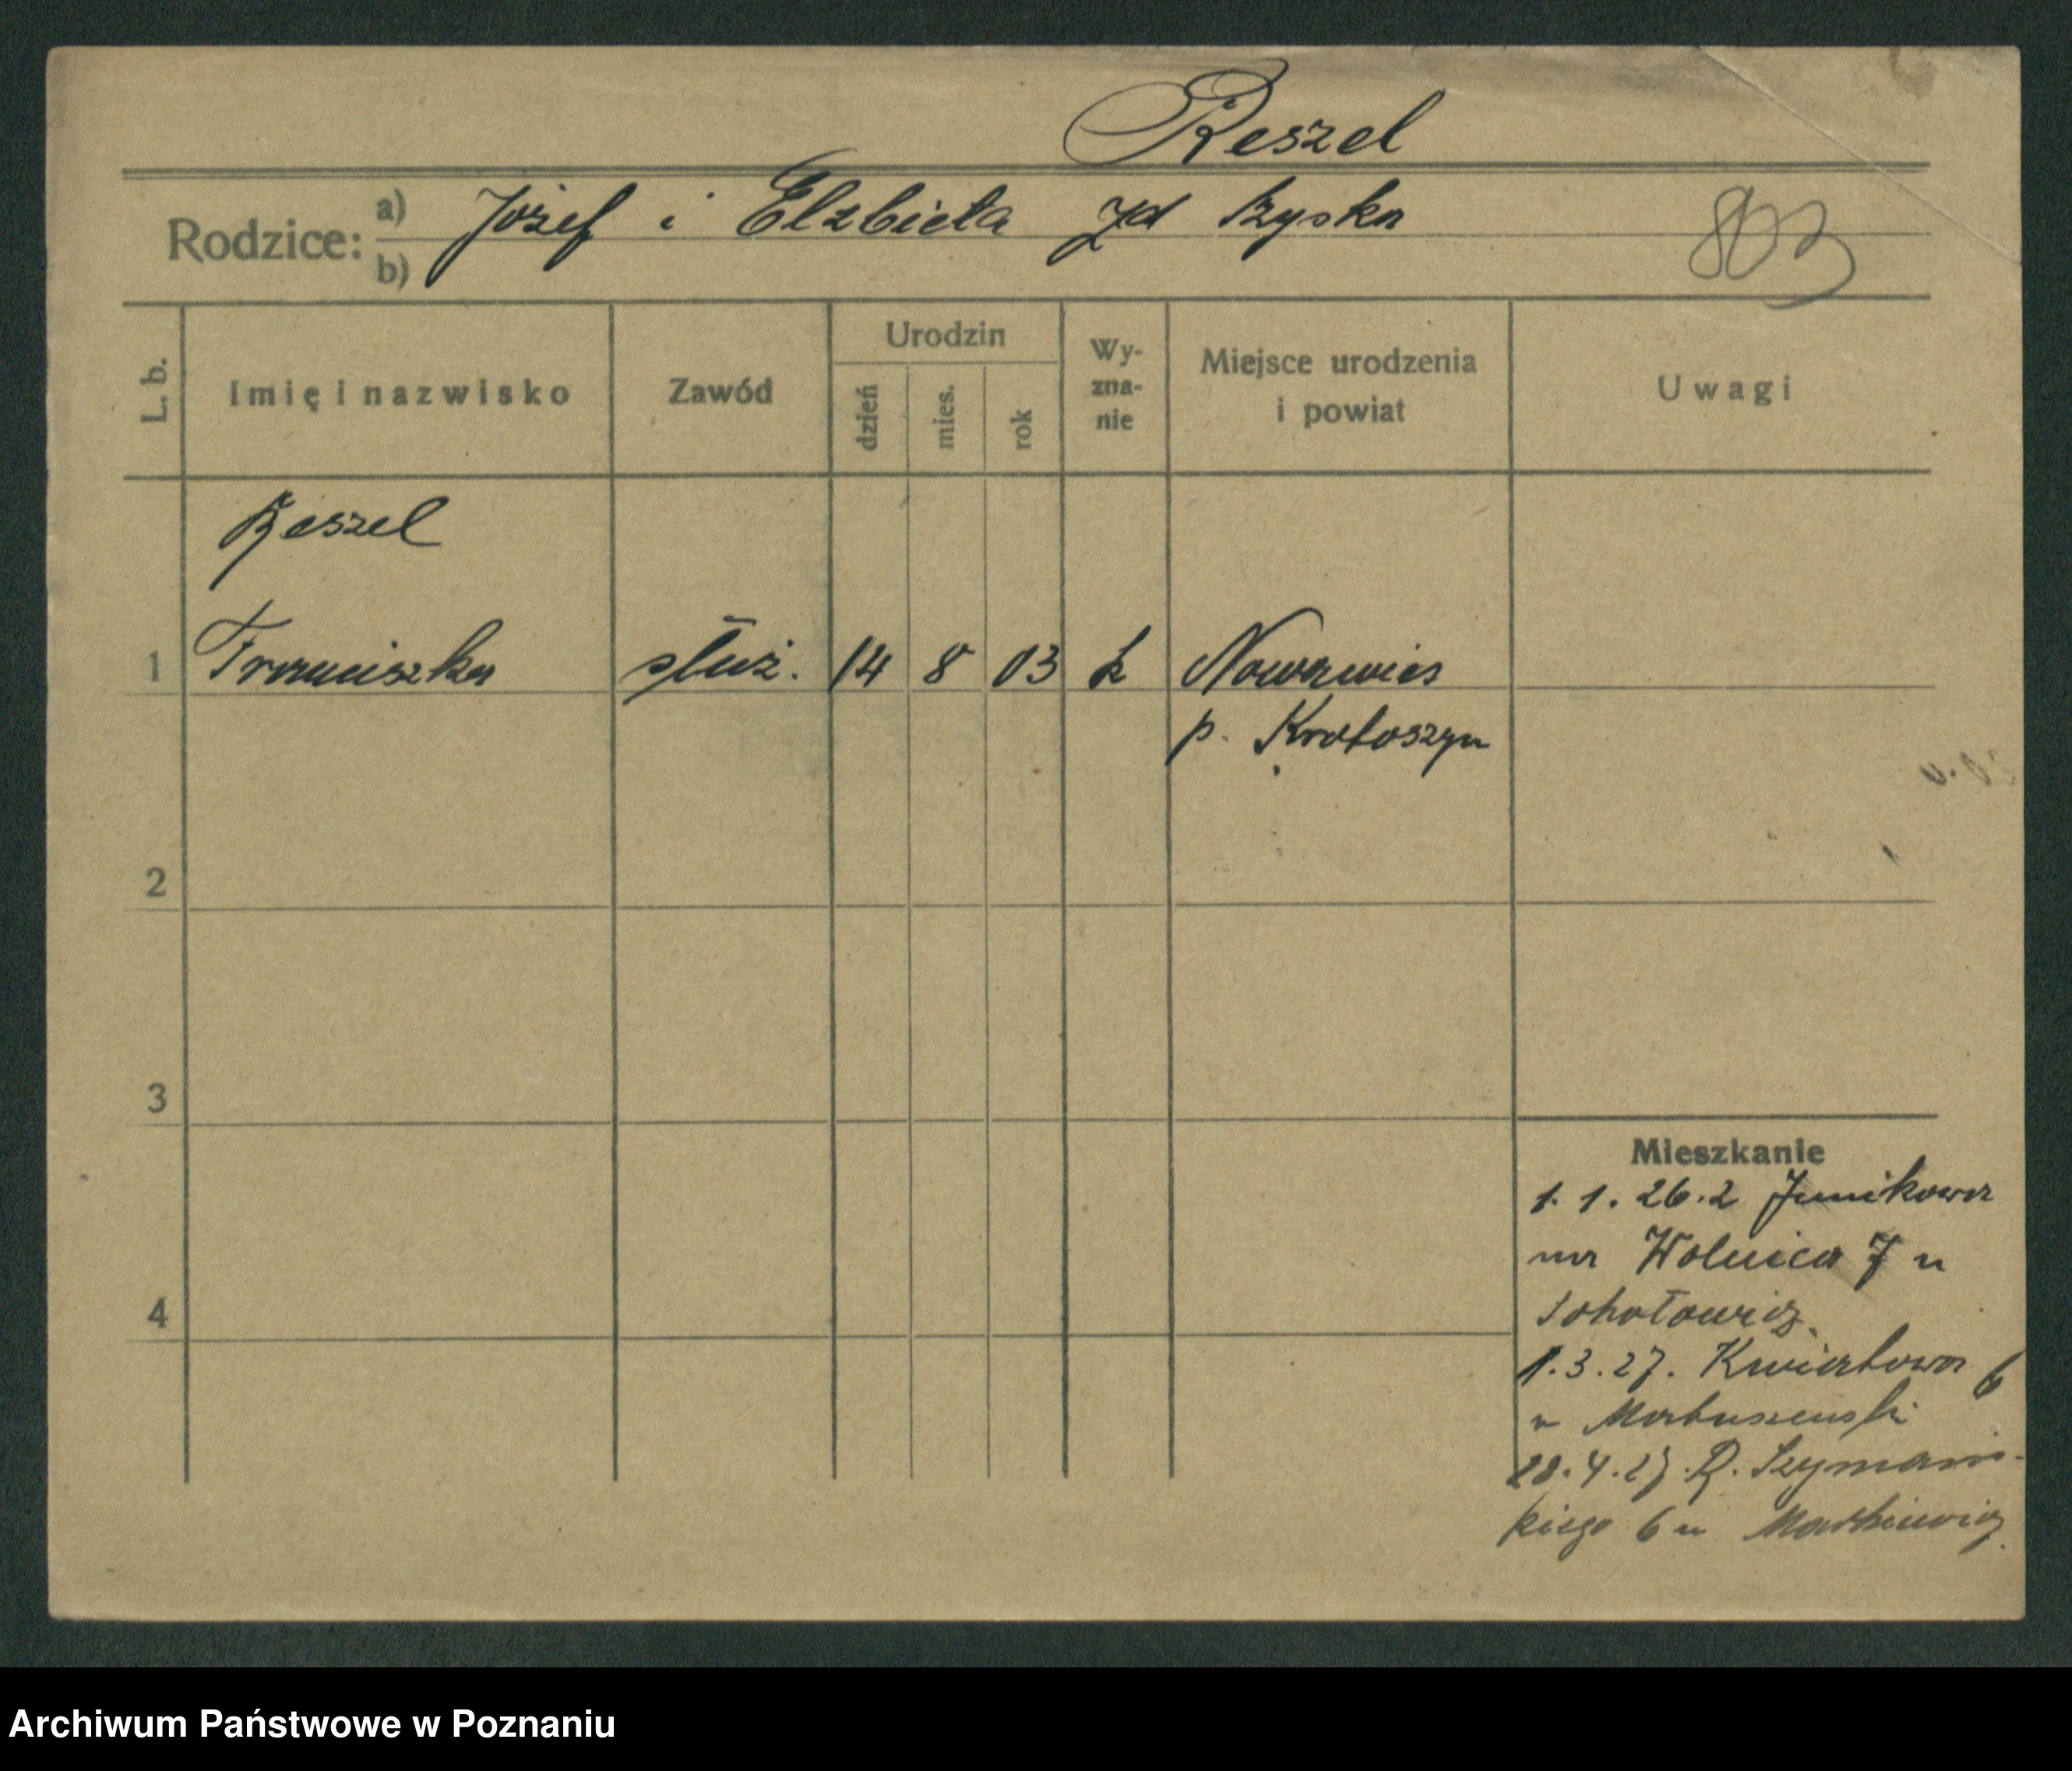 Reszel
Rodzice: a) Józef i Elzbieta zd Ryska
b)
803
L. b. Imię i nazwisko Zawód Urodzin dzień mies. rok Wy-zna-nie Miejsce urodzenia i powiat Uwagi
Reszel
1 Franciszka służ. 14 8 03 k Nowawies
p. Krotoszyn
2
3
4
Mieszkanie
1. 1. 26. z Junikowa
na Wolnica 7 u
Sokołowicz.
1. 3. 27. Kwiatowa 6
u Matuszewski
28. 4. 27. R. Szymańs-
kiego 6 u Markiewicz.
Archiwum Państwowe w Poznaniu